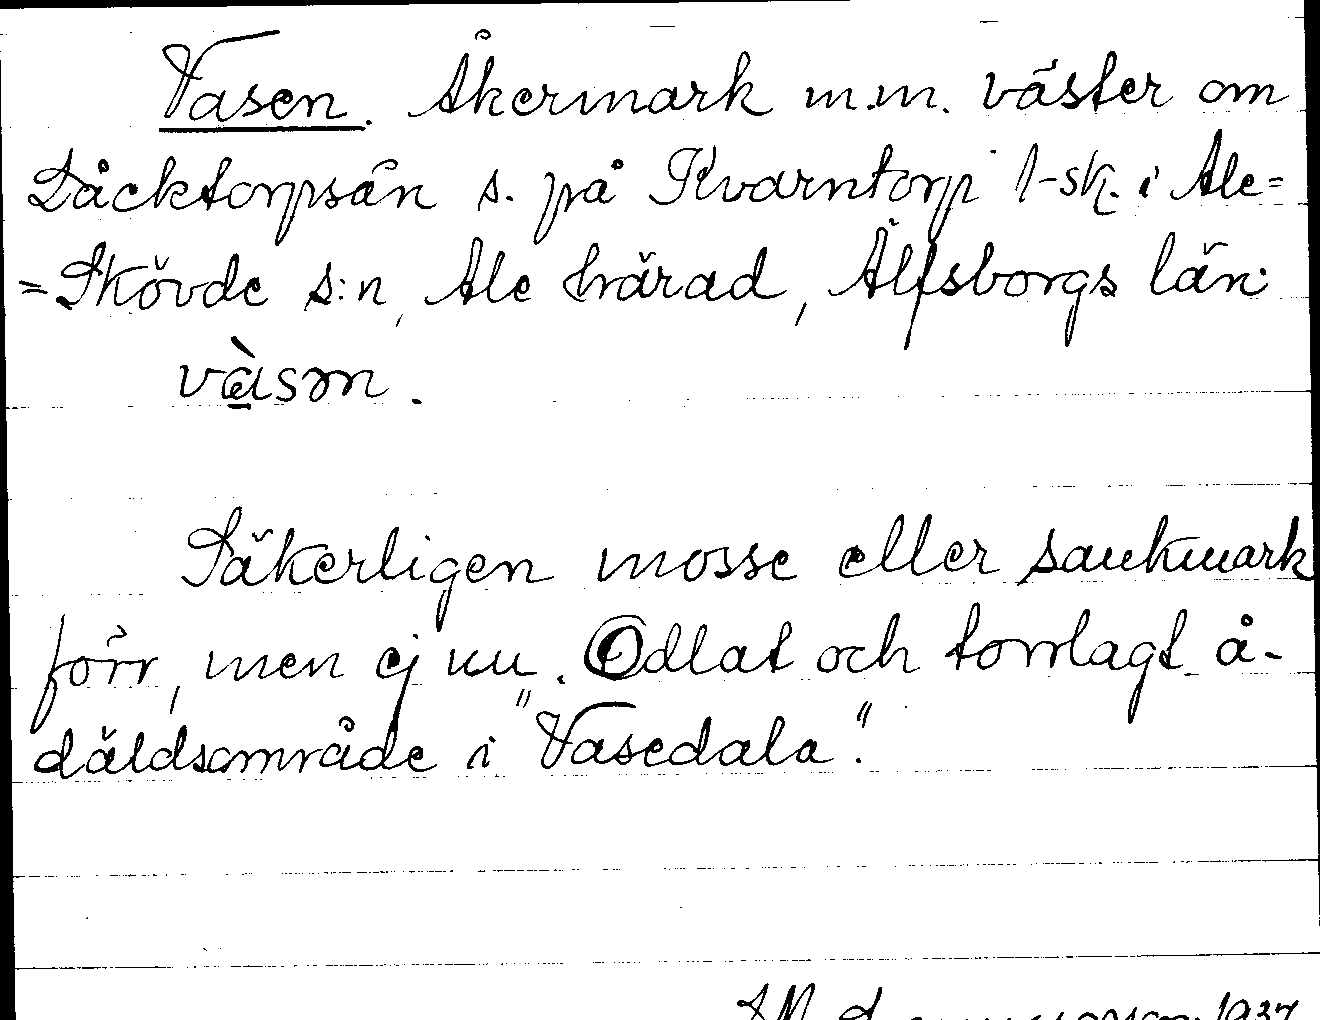 Vasen. Åkermark m.m. väster om
Såcktorpsån s. på Kvarntorp 1-sk. i Ale=
=Skövde s:n, Ale härad, Älfsborgs län.
vàsm.
Säkerligen mosse eller sankmark
förr, men ej nu. Odlat och torrlagt å-
däldsområde i "Vasedala".
1937